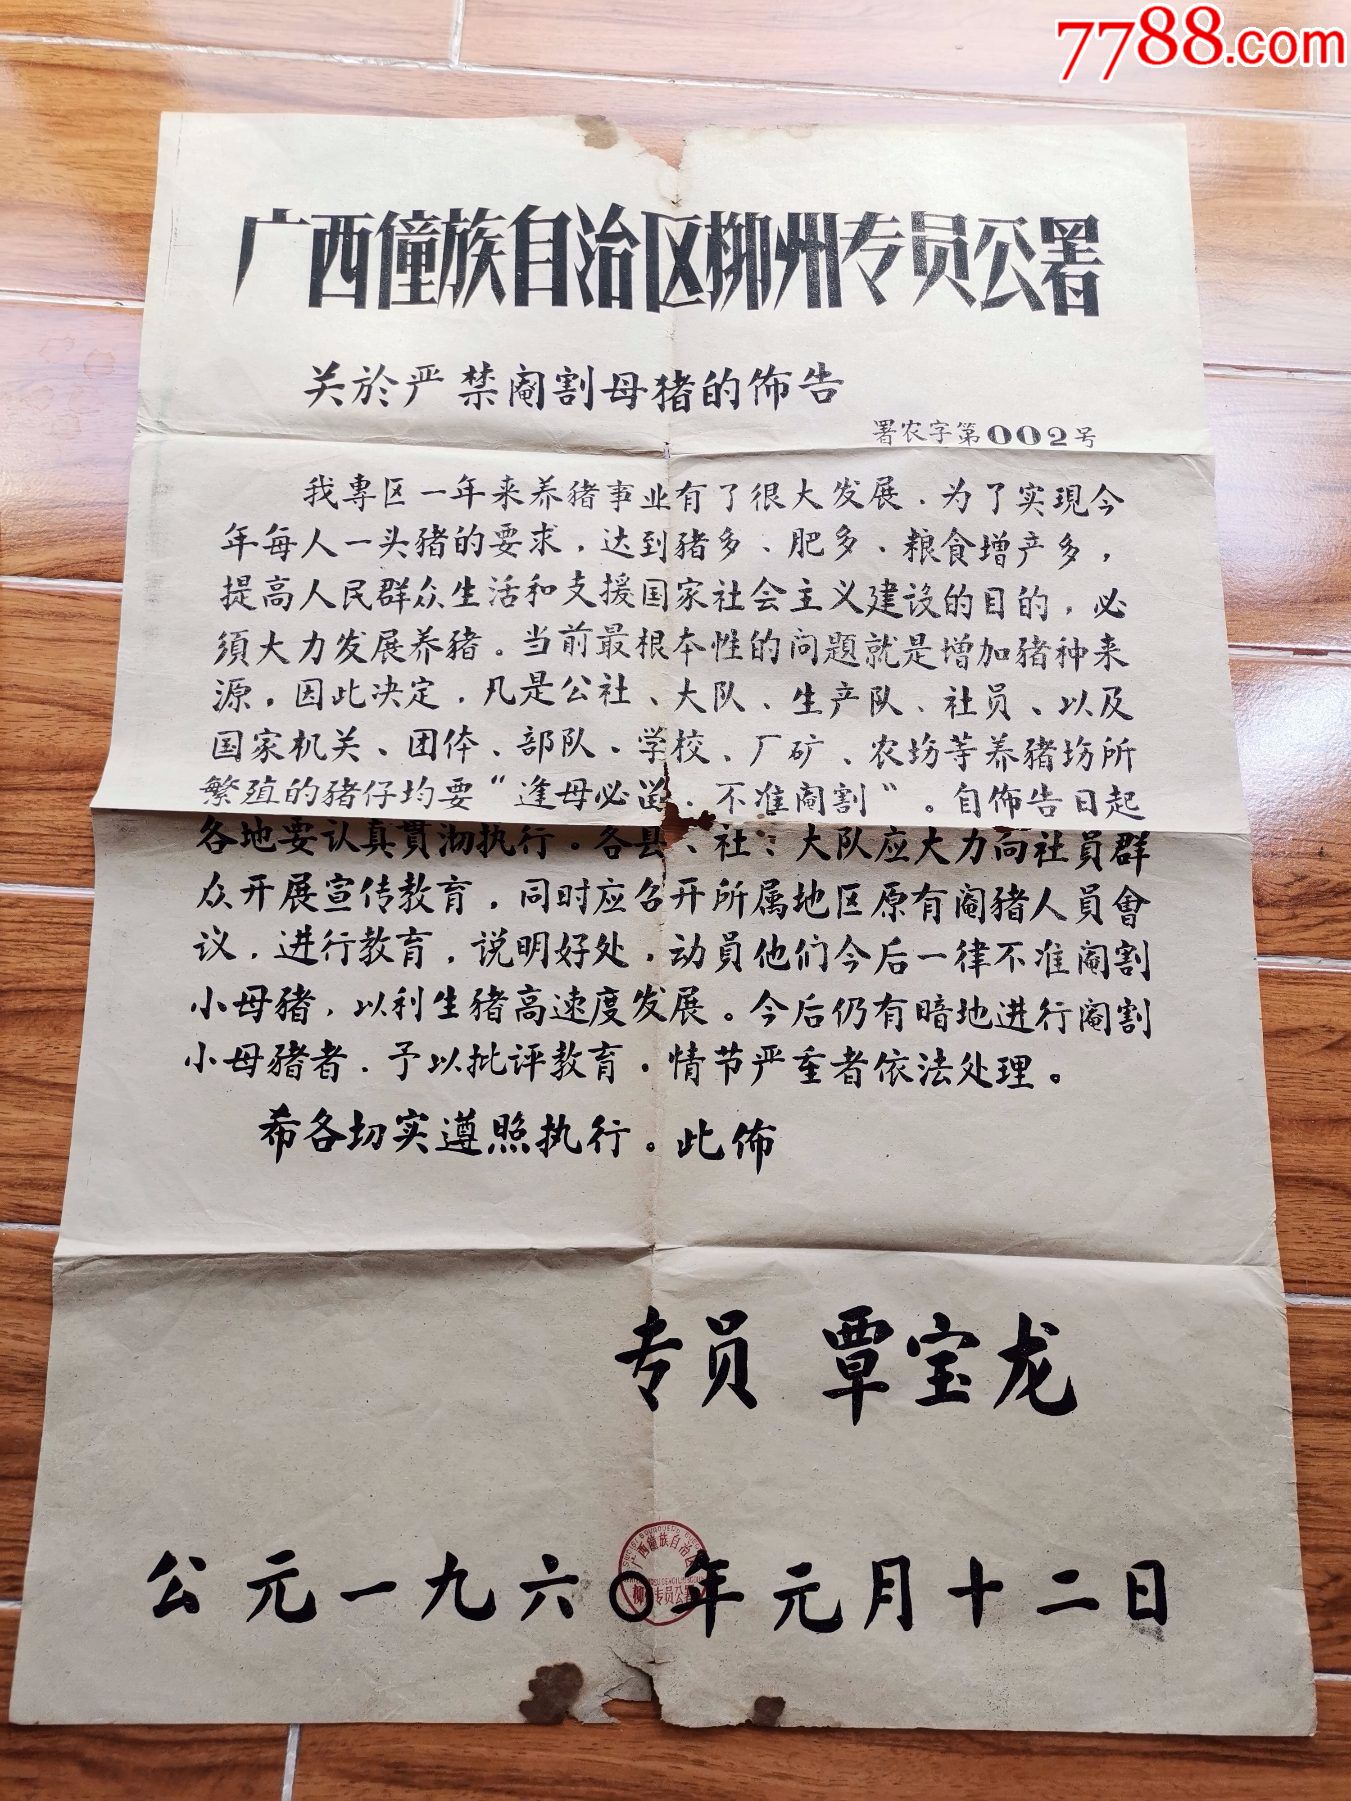 7788.com
广西僮族自治区柳州专员公署
关於严禁阉割母猪的佈告
署农字第002号
我専区一年来养猪事业有了很大发展．为了实现今
年每人一头猪的要求，达到猪多、肥多、粮食增产多，
提高人民群众生活和支援国家社会主义建设的目的，必
須大力发展养猪。当前最根本性的问題就是增加猪种来
源，因此决定，凡是公社、大队、生产队、社员、以及
国家机关、团体、部队、学校、厂矿、农坊等养猪坊所
繁殖的猪仔均要“逢母必留、不准阉割”。自佈告日起
各地要认真貫沏执行。各县、社、大队应大力向社員群
众开展宣传教育，同时应召开所属地区原有阉猪人員會
议，进行教育，说明好处，动員他们今后一律不准阉割
小母猪，以利生猪高速度发展。今后仍有暗地进行阉割
小母猪者．予以批评教育．情节严重者依法处理。
希各切实遵照执行。此佈
专员 覃宝龙
广西僮族自治区
柳州专员公署
公元一九六〇年元月十二日